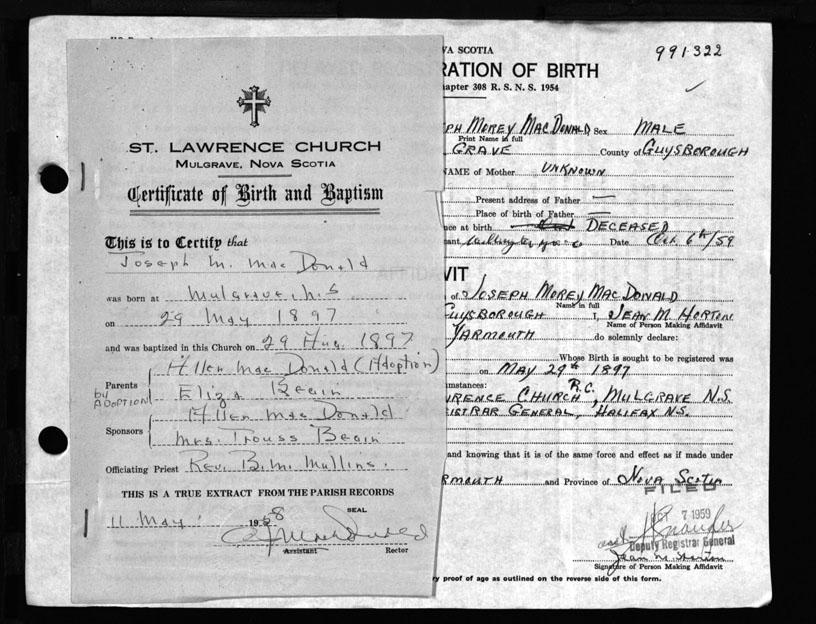 ST. LAWRENCE CHURCH
MULGRAVE, NOVA SCOTIA
Certificate of Birth and Baptism
This is to Certify that
Joseph M. Mac Donald
was born at Mulgrave, N.S
on 29 May 1897
and was baptized in this Church on 29 Aug. 1897
Parents
by ADOPTION
Allen Mac Donald (Adoption)
Eliza Begin
Sponsors
Allen Mac Donald
Mrs. Begin
Officiating Priest Rev. B. M. Mullins.
THIS IS A TRUE EXTRACT FROM THE PARISH RECORDS
11 May 1958
SEAL
Assistant Rector
VA SCOTIA
991322
RATION OF BIRTH
apter 308 R. S. N. S. 1954
EPH MOREY MACDONALD Sex MALE
Print Name in full
GRAVE County of GUYSBOROUGH
NAME of Mother UNKNOWN
Present address of Father —
Place of birth of Father —
nce at birth DECEASED
ant Date Oct. 6th/59
VIT
of JOSEPH MOREY MACDONALD
Name in full
GUYSBOROUGH I, JEAN M. HORTON
Name of Person Making Affidavit
YARMOUTH do solemnly declare:
Whose Birth is sought to be registered was
on MAY 29th 1897
mstances: R.C.
RENCE CHURCH, MULGRAVE N.S.
GISTRAR GENERAL, HALIFAX N.S.
and knowing that it is of the same force and effect as if made under
RMOUTH and Province of Nova Scotia
FILED
7 1959
Deputy Registrar General
Jean M. Horton
Signature of Person Making Affidavit
ry proof of age as outlined on the reverse side of this form.